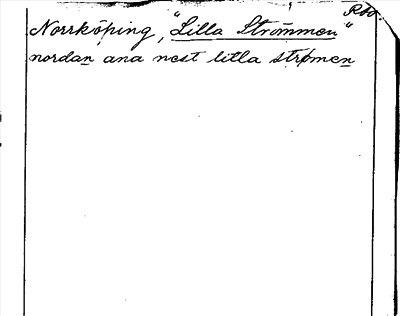 Rbo.
Norrköping, "Lilla Strömmen"
nordan ana nest litla strømen